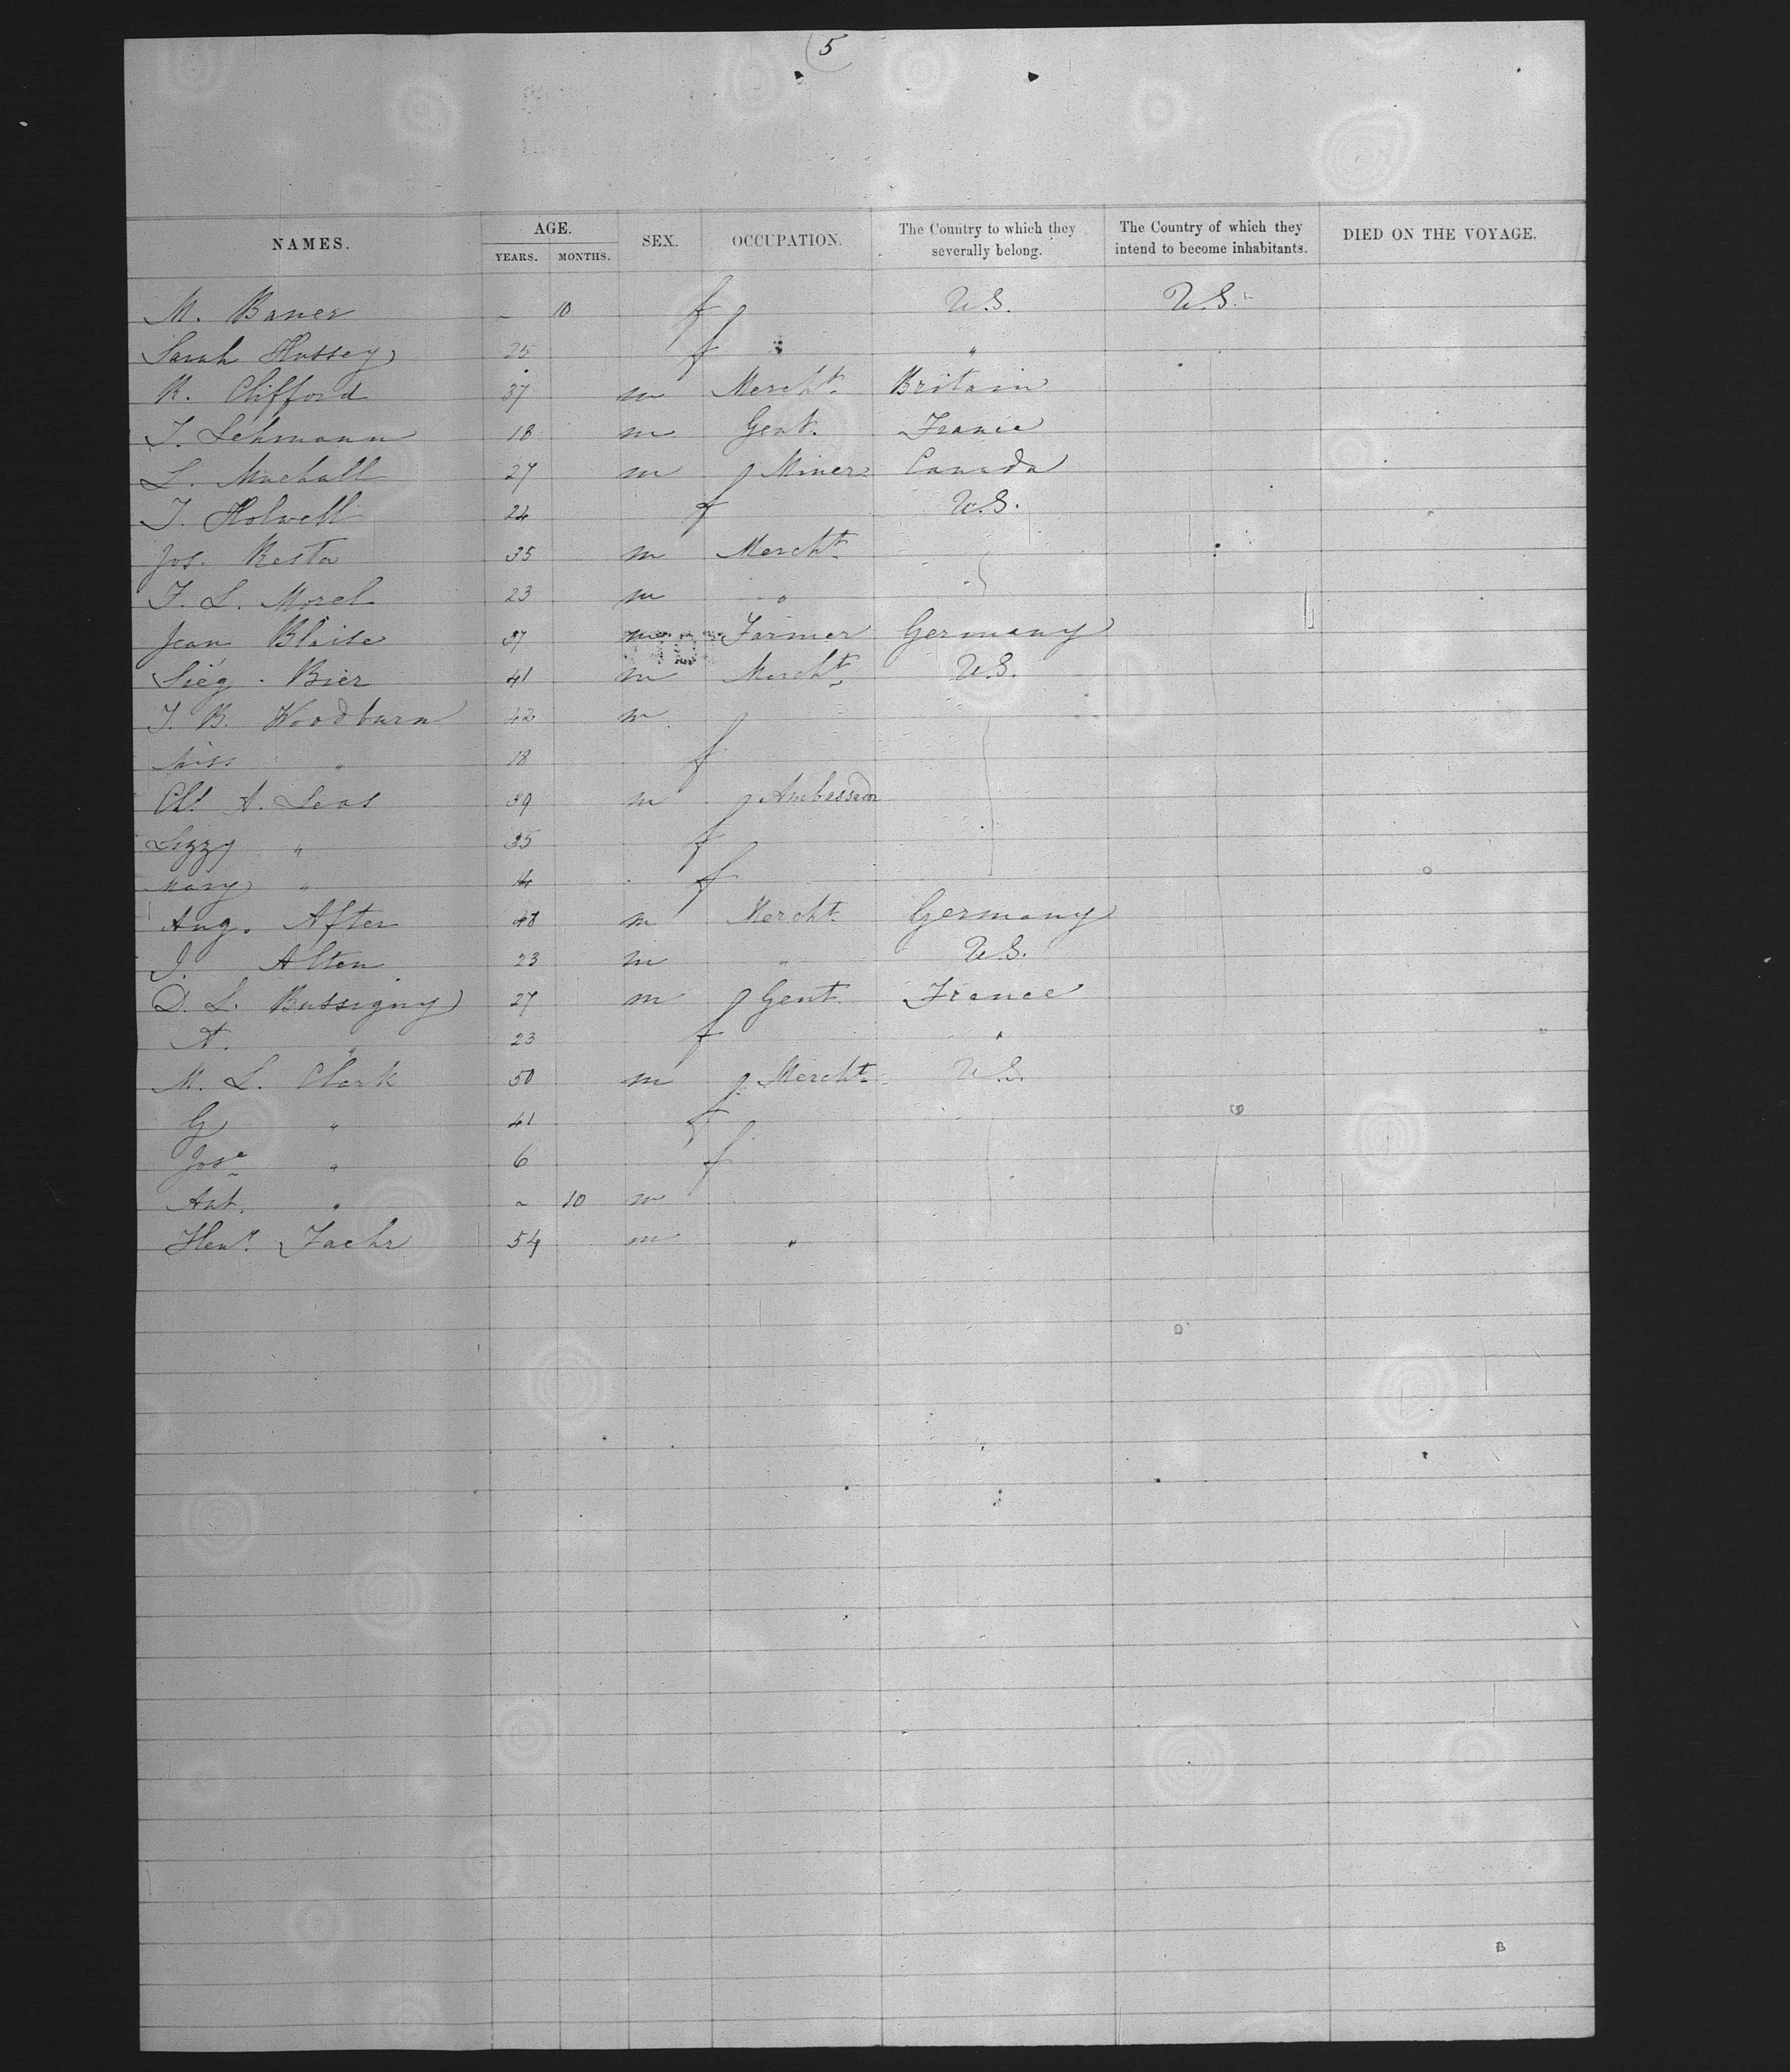 5
NAMES. AGE. YEARS. MONTHS. SEX. OCCUPATION. The Country to which they severally belong. The Country of which they intend to become inhabitants. DIED ON THE VOYAGE.
M. Baner – 10 f U.S. U.S.
Sarah Hussey 25 f "
R. Clifford 37 m Mercht. Britain
J. Lehmann 18 m Gent. France
L. Machall 27 m Miner Canada
J. Holwell 24 f U.S.
Jos. Resta 35 m Mercht.
F. L. Morel 23 m "
Jean Blaise 37 m Farmer Germany
Siég. Bier 41 m Mercht. U.S.
J. B. Woodburn 42 m
Miss " 18 f
A. Leas 39 m Ambassador
Lizzy " 35 f
Mary " 14 f
Aug. After 48 m Mercht. Germany
J. Alten 23 m " U.S.
D. L. Bussigny 27 m Gent. France
A. " 23 f "
M. L. Clark 50 m Mercht. U.S.
G " 41 f
Jose " 6 f
Ant. " – 10 m
Heny. Zachr 54 m "